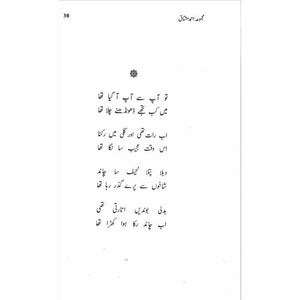 38
مجموعہ احمد مشتاق
تو آپ سے آپ آ گیا تھا
میں کب تجھے ڈھونڈنے چلا تھا
اب رات تھی اور گلی میں رکنا
اس وقت عجیب سا لگا تھا
دبلا پتلا نحیف سا چاند
شاخوں سے پرے گذر رہا تھا
بدلی بوندیں اتارتی تھی
اب چاند رکا ہوا کھڑا تھا